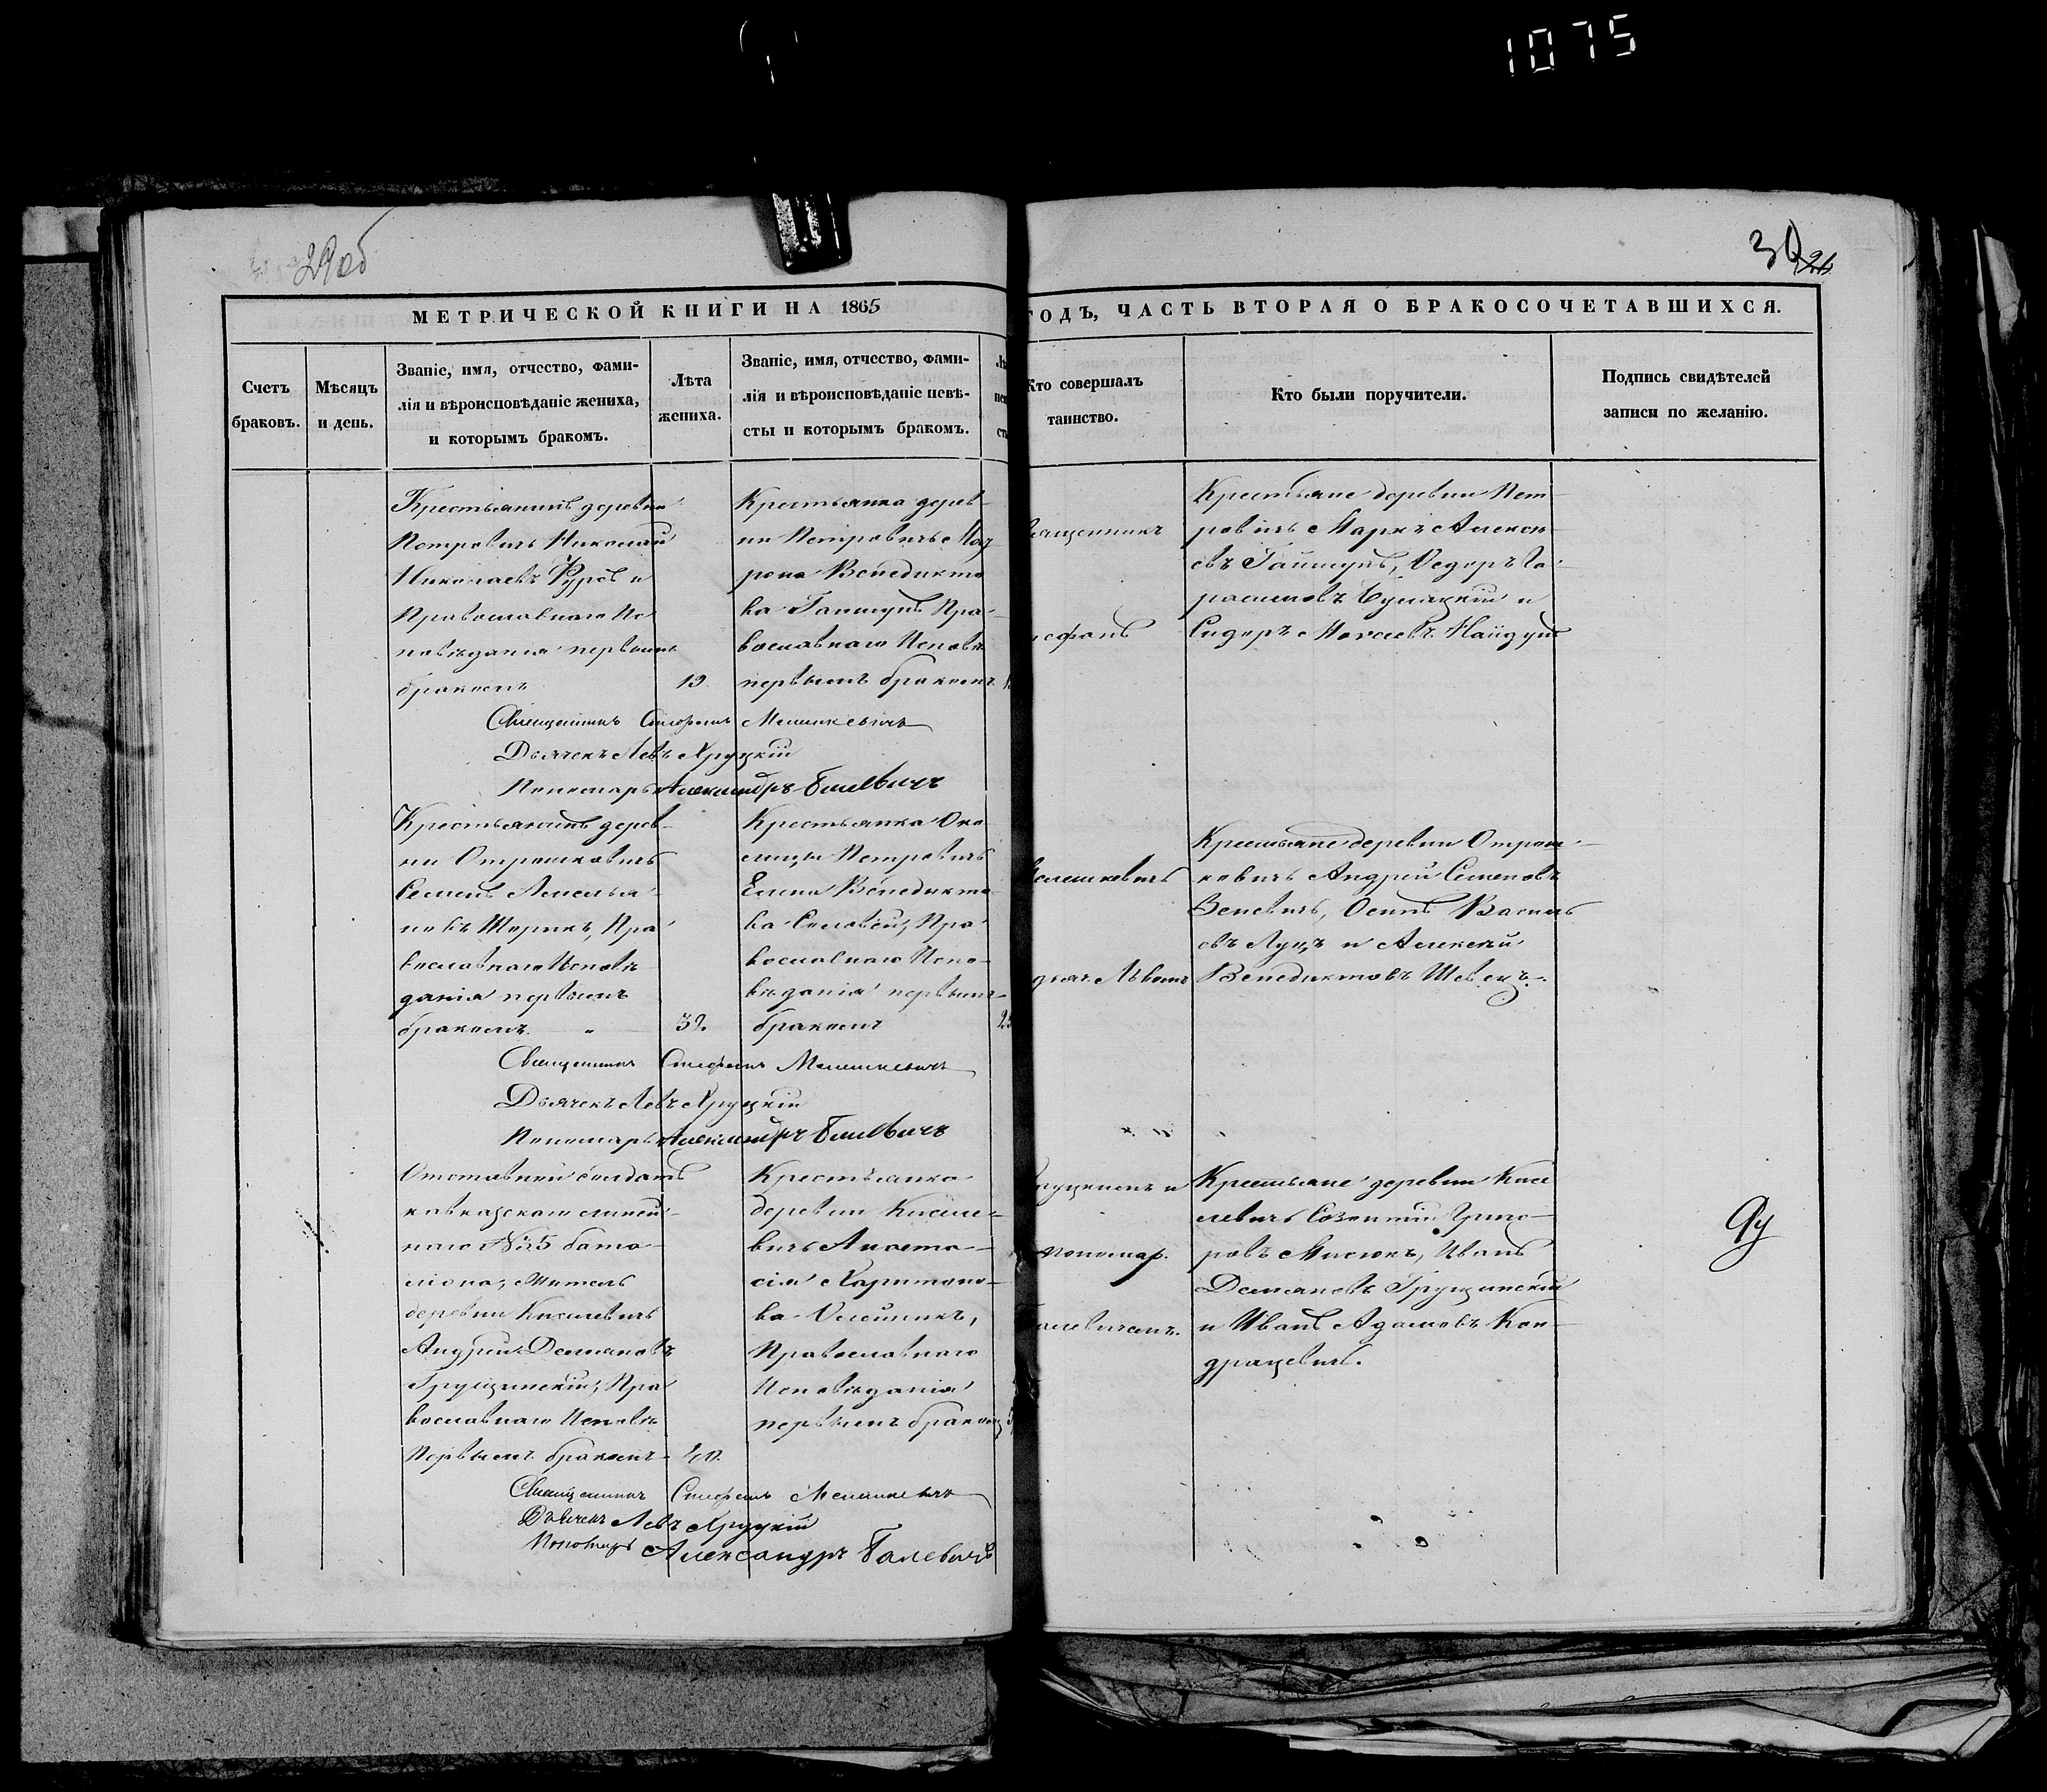 1075
29об
30
МЕТРИЧЕСКОЙ КНИГИ НА 1865
ГОДЪ, ЧАСТЬ ВТОРАЯ О БРАКОСОЧЕТАВШИХСЯ.
Счетъ
браковъ.
Мѣсяцъ
и день.
Званіе, имя, отчество, фами-
лія и вѣроисповѣданіе жениха,
и которымъ бракомъ.
Лѣта
жениха.
Званіе, имя, отчество, фами-
лія и вѣроисповѣданіе невѣ-
сты и которымъ бракомъ.
Кто совершалъ
таинство.
Кто были поручители.
Подпись свидѣтелей
записи по желанію.
Крестьянинъ деревни
Петровичъ Николай
Николаевъ
Православнаго Ис
повѣданія первымъ
бракомъ
19.
Крестьянка дерев-
ни Петровичъ Мат
рона Венедикто
ва Гайшунъ Пра-
вославнаго Исповѣ
первымъ бракомъ
ященникъ
ефанъ
Крестьяне деревни Пет-
ровичъ Марко Алексѣ
евъ Гайшунъ, Ѳедоръ Га-
расимовъ и
Сидоръ Моисеевъ Найдунъ
Священникъ Стефанъ Мелешкевичъ
Дьячекъ Левъ Хруцкій
Пономарь Александръ Балевичъ
Крестьянинъ дерев-
ни Отрошковичъ
Семенъ Амелья-
новъ Шорикъ, Пра-
вославнаго Исповѣ-
данія первымъ
бракомъ
32.
Крестьянка Око-
лицы Петровичъ
Елена Венедикто-
ва Соловей, Пра-
вославнаго Испо-
вѣданія первымъ
бракомъ
Мелешкевичъ
дьяч. Львомъ
Крестьяне деревни Отрош-
ковичъ Андрей Семеновъ
Зеневичъ, Осипъ Василь
евъ Луцъ и Алексѣй
Венедиктовъ Шевецъ.
Священникъ Стефанъ Мелешкевичъ
Дьячекъ Левъ Хруцкій
Пономарь Александръ Балевичъ
Отставной солдатъ
кавказскаго линей-
наго №35 бата-
ліона, Житель
деревни Киселевичъ
Андрей Демьяновъ
Грущинскій, Пра-
вославнаго Исповѣ
Первымъ бракомъ
40.
Крестьянка
деревни Киселе-
вичъ Анаста-
сія Харитоно-
ва Олейникъ,
Православнаго
Исповѣданія
первымъ бракомъ
руцкимъ и
пономар.
алевичемъ.
Крестьяне деревни Кисе
левичъ Созонтій Григо-
ровъ Мисюкъ, Иванъ
Демьяновъ Грущинскій
и Иванъ Адамовъ Кон-
драцевичъ.
Священникъ Стефанъ Мелешкевичъ
Дьячекъ Левъ Хруцкій
Пономарь Александръ Балевичъ